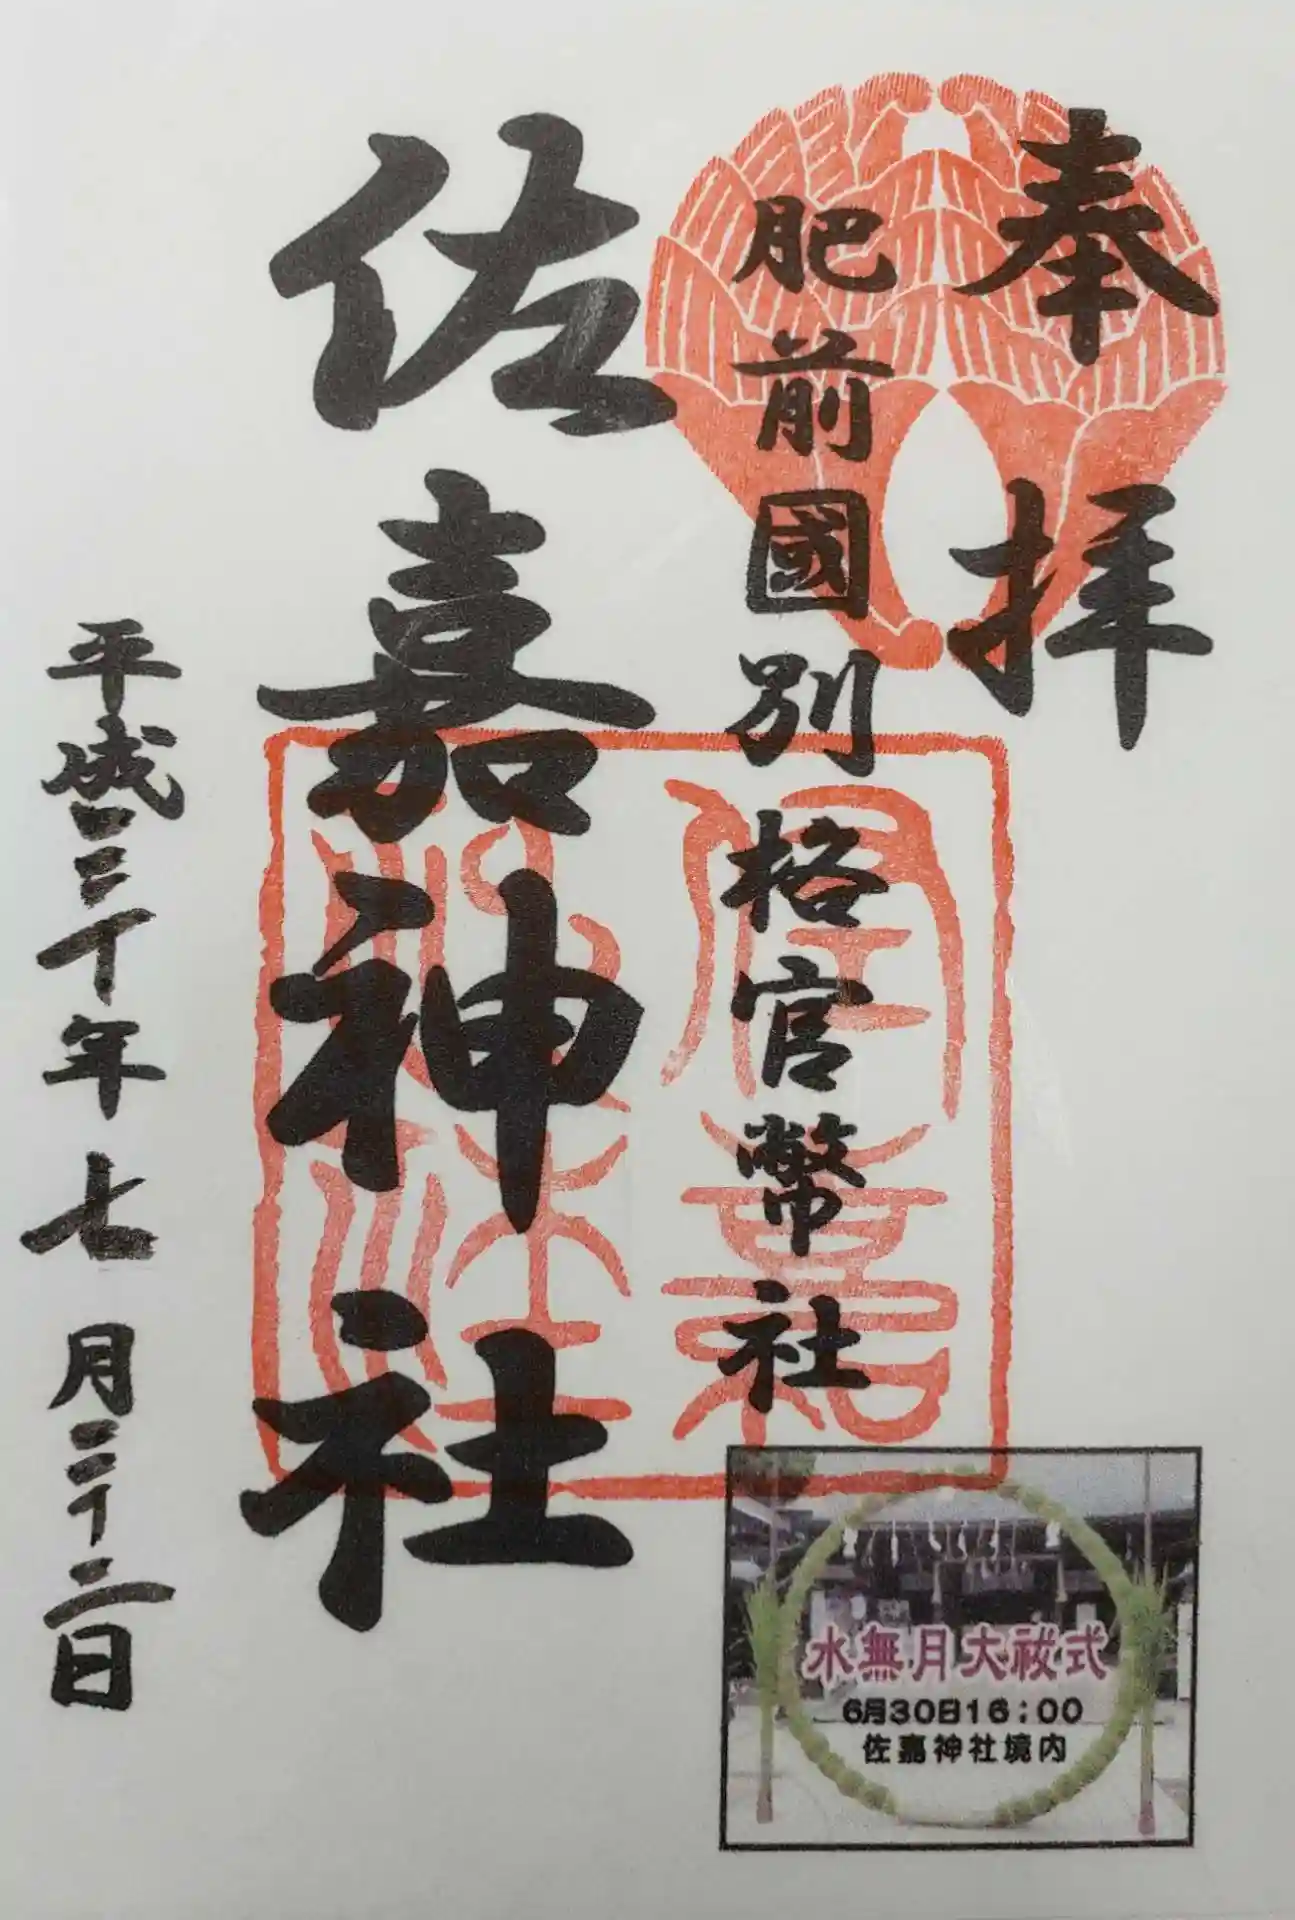 奉拝
肥前國別格官幣社
佐嘉神社
平成三十年七月二十二日
佐嘉
神社
水無月大祓式
6月30日16:00
佐嘉神社境内